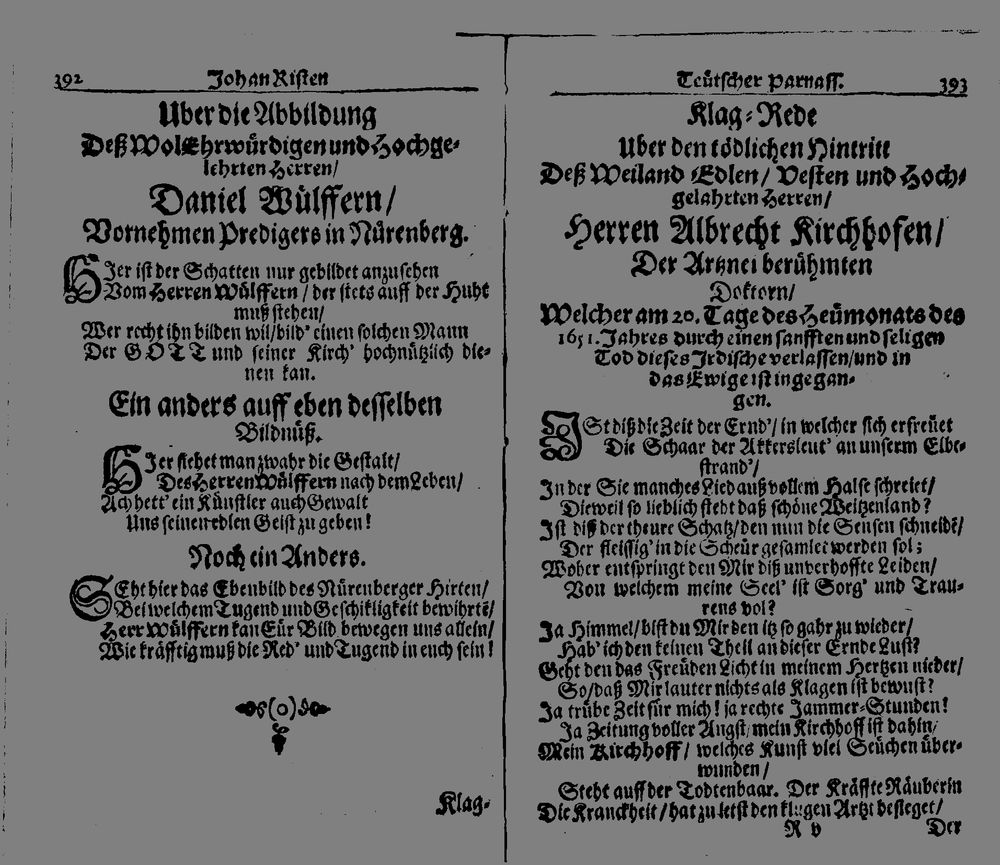 392 Johan Risten
Uber die Abbildung
Deß WolEhrwürdigen und Hochge-
lehrten Herren/
Daniel Wülffern/
Vornehmen Predigers in Nürenberg.
HIer ist der Schatten nur gebildet anzusehen
Vom Herren Wülffern / der stets auff der Huht
muß stehen/
Wer recht ihn bilden wil/bild' einen solchen Mann
Der GOTT und seiner Kirch' hochnützlich die-
nen kan.
Ein anders auff eben desselben
Bildnüß.
HIer siehet man zwahr die Gestalt/
Des Herren Wülffern nach dem Leben/
Ach hett' ein Künstler auch Gewalt
Uns seinen edlen Geist zu geben!
Noch ein Anders.
SEht hier das Ebenbild des Nürenberger Hirten/
Bei welchem Tugend und Geschikligkeit bewihrtē/
Herr Wülffern kan Eür Bild bewegen uns allein/
Wie kräfftig muß die Red' und Tugend in euch sein!
(o)
Klag-
Teütscher Parnass. 393
Klag-Rede
Uber den tödlichen Hintritt
Deß Weiland Edlen/ Vesten und Hoch-
gelahrten Herren/
Herren Albrecht Kirchhofen/
Der Artznei berühmten
Doktorn/
Welcher am 20. Tage des Heümonats des
1651. Jahres durch einen sanfften und seligen
Tod dieses Irdische verlassen/und in
das Ewige ist ingegan-
gen.
ISt diß die Zeit der Ernd'/ in welcher sich erfreüet
Die Schaar der Akkersleut' an unserm Elbe-
strand'/
In der Sie manches Lied auß vollem Halse schreiet/
Dieweil so lieblich steht daß schöne Weitzenland?
Ist diß der theure Schatz/den nun die Sensen schneidē/
Der fleissig' in die Scheür gesamlet werden sol;
Woher entspringt den Mir diß unverhoffte Leiden/
Von welchem meine Seel' ist Sorg' und Trau-
rens vol?
Ja Himmel/bist du Mir den itz so gahr zu wieder/
Hab' ich den keinen Theil an dieser Ernde Lust?
Geht den das Freüden Licht in meinem Hertzen nieder/
So/daß Mir lauter nichts als Klagen ist bewust?
Ja trübe Zeit für mich! ja rechte Jammer-Stunden!
Ja Zeitung voller Angst/mein Kirchhoff ist dahin/
Mein Kirchhoff/ welches Kunst viel Seüchen über-
wunden/
Steht auff der Todtenbaar. Der Kräffte Räuberin
Die Kranckheit/hat zu letst den klugen Artzt besieget/
R v Der